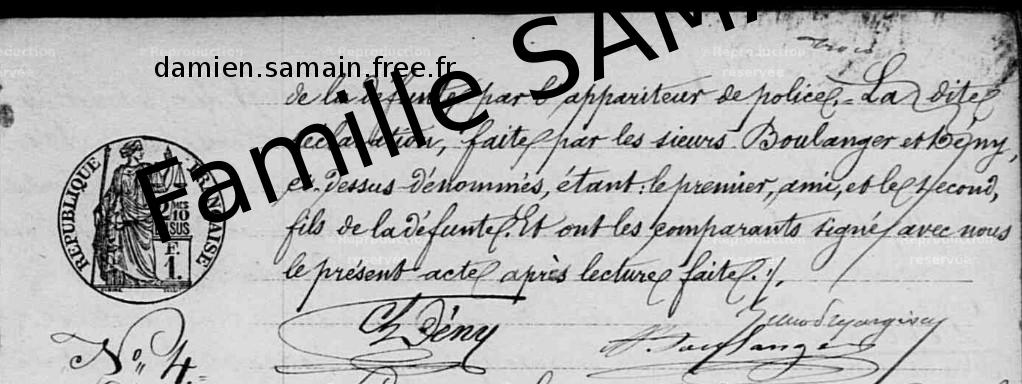 trois
Famille SAMA
damien.samain.free.fr
de la défunte, par l'appariteur de police. = La dite
déclaration, faite par les sieurs Boulanger et Dény,
ci-dessus dénommés, étant: le premier, ami, et le second,
fils de la défunte. Et ont les comparants signé avec nous
le présent acte après lecture faite. ·/.
RÉPUBLIQUE FRANÇAISE
2 DMES
10
SUS
F.
1.
Ch Dény
Boulanger
No. 4.